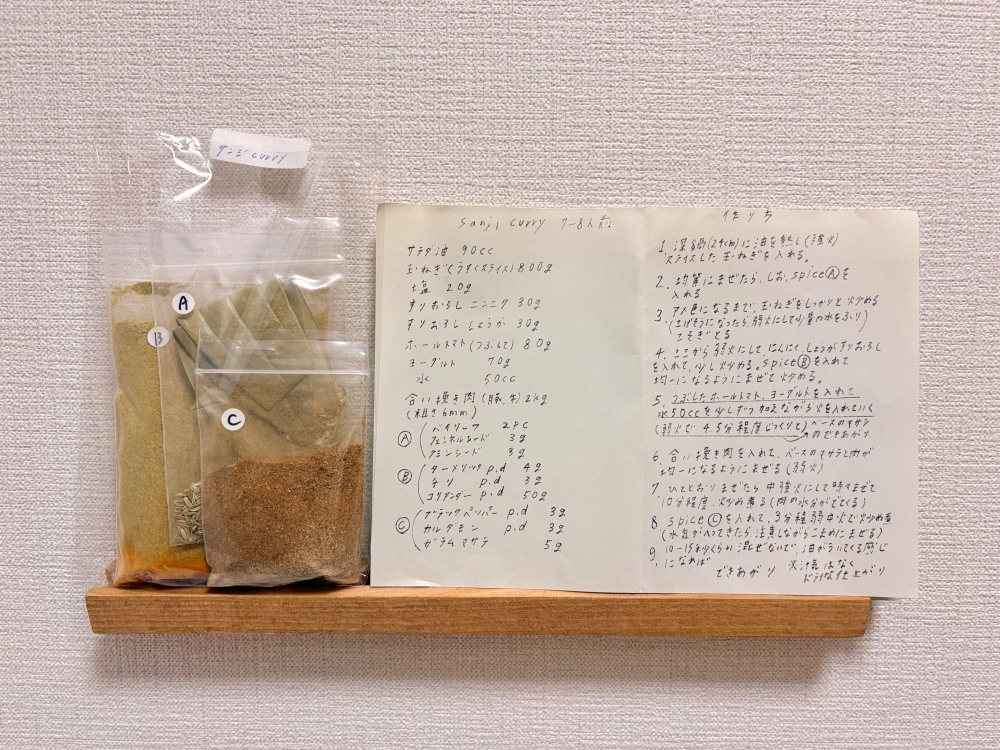 サンジ curry
A
B
C
Sanji curry 7~8人前
サラダ油 90cc
玉ねぎ(うすくスライス) 800g
塩 20g
すりおろし ニンニク 30g
すりおろし しょうが 30g
ホールトマト(つぶして) 80g
ヨーグルト 70g
水 50cc
合い挽き肉(豚、牛) 2kg
(粗さ6mm)
Ⓐ ベイリーフ 2PC
フェンネルシード 3g
クミンシード 3g
Ⓑ ターメリック p.d 4g
チリ p.d 3g
コリアンダー p.d 50g
Ⓒ ブラックペッパー p.d 3g
カルダモン p.d 3g
ガラムマサラ 5g
作り方
1. 深鍋(24cm)に油を熱し(強火)
スライスした玉ねぎを入れる。
2. 均等にまぜたら、しお、spiceⒶを
入れる
3. アメ色になるまで、玉ねぎをしっかりと炒める
(こげそうになったら弱火にして少量の水をふり)
こそぎとる
4. ここから弱火にして、にんにく、しょうがすりおろし
を入れて、少し炒める。spiceⒷを入れて
均一になるようにまぜて炒める。
5. つぶしたホールトマト、ヨーグルトを入れて
水50ccを少しずつ加えながら火を入れていく
(弱火で 4.5分程度じっくりと) ベースのマサラ
のできあがり
6 合い挽き肉を入れて、ベースのマサラと肉が
均一になるようにまぜる(弱火)
7. ひととおりまぜたら中強火にして時々まぜて
10分程度、炒め煮る(肉の水分がでてくる)
8. spiceⒸを入れて、3分程弱中火で炒め煮
(水気がへってきたら注意しながらこまめにまぜる)
9. 混ぜないで、油がういてくる感じ
になれば
できあがり 水汁気はなく
ドライな仕上がり